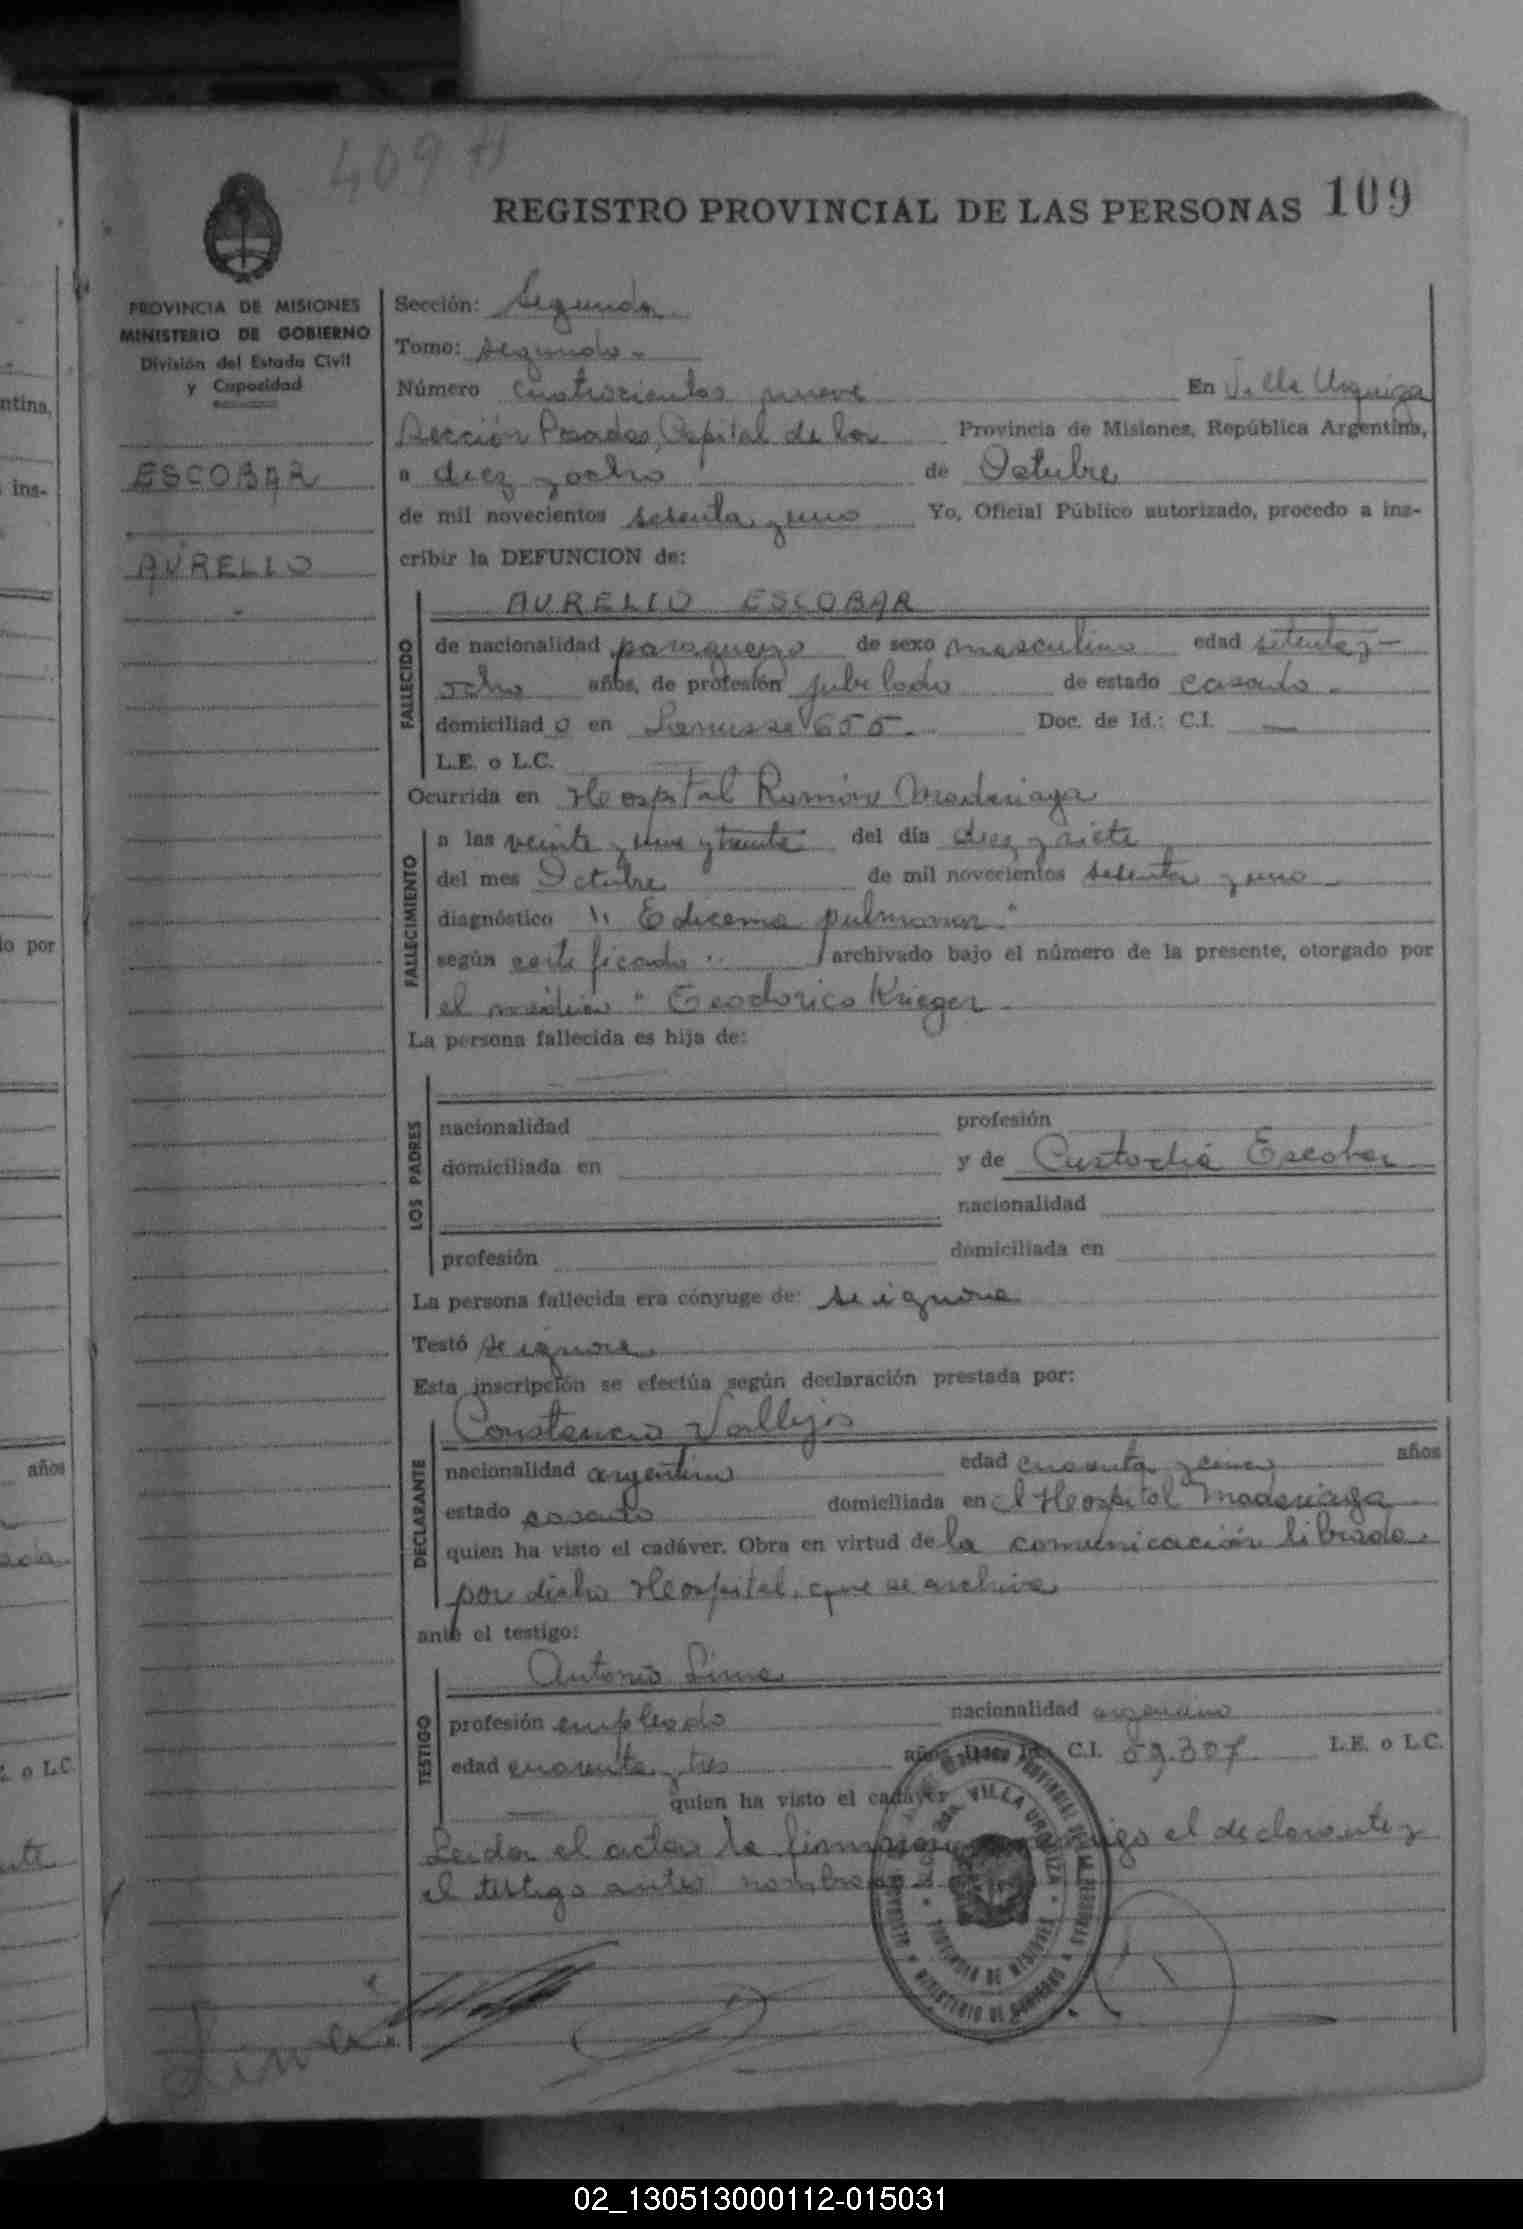 409 H
REGISTRO PROVINCIAL DE LAS PERSONAS 109
PROVINCIA DE MISIONES
MINISTERIO DE GOBIERNO
División del Estado Civil
y Capacidad
ESCOBAR
AURELIO
Sección: Segunda
Tomo: Segundo.
Número Cuatrocientos nueve En Villa Urquiza
Sección Posadas, Capital de la Provincia de Misiones, República Argentina,
a diez y ocho de Octubre
de mil novecientos setenta y uno Yo, Oficial Público autorizado, procedo a ins-
cribir la DEFUNCION de:
AURELIO ESCOBAR
FALLECIDO
de nacionalidad paraguayo de sexo masculino edad setenta y
ocho años, de profesión jubilado de estado casado.
domiciliado en Lanusse 655. Doc. de Id.: C.I. —
L.E. o L.C. —
Ocurrida en Hospital Ramón Madariaga
FALLECIMIENTO
a las veinte y una y treinta del día diez y siete
del mes Octubre de mil novecientos setenta y uno
diagnóstico " Edicema pulmonar"
según certificado archivado bajo el número de la presente, otorgado por
el médico " Teodorico Krieger
La persona fallecida es hija de:
LOS PADRES
nacionalidad profesión
domiciliada en y de Custodia Escobar
nacionalidad
profesión domiciliada en
La persona fallecida era cónyuge de: se ignora
Testó se ignora
Esta inscripción se efectúa según declaración prestada por:
Constancio Vallejos
DECLARANTE
nacionalidad argentino edad cuarenta y cinco años
estado casado domiciliada en el Hospital Madariaga
quien ha visto el cadáver. Obra en virtud de la comunicación librada
por dicho Hospital, que se archiva
ante el testigo:
Antonio Lima
TESTIGO
profesión empleado nacionalidad argentino
edad cuarenta y tres años C.I. 59.307 L.E. o L.C.
— quien ha visto el cadáver
Leida el acta la firman el declarante y
el testigo antes nombrado
Lima
VILLA URQUIZA
PROVINCIA DE MISIONES
MINISTERIO DE GOBIERNO
02_130513000112-015031